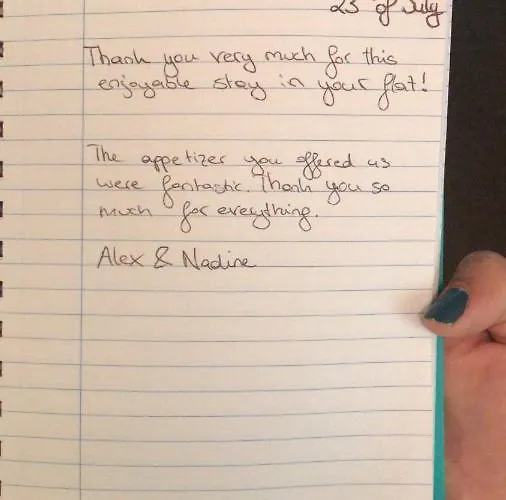 23 of July
Thank you very much for this
enjoyable stay in your flat!
The appetizer you offered us
were fantastic. Thank you so
much for everything.
Alex & Nadine